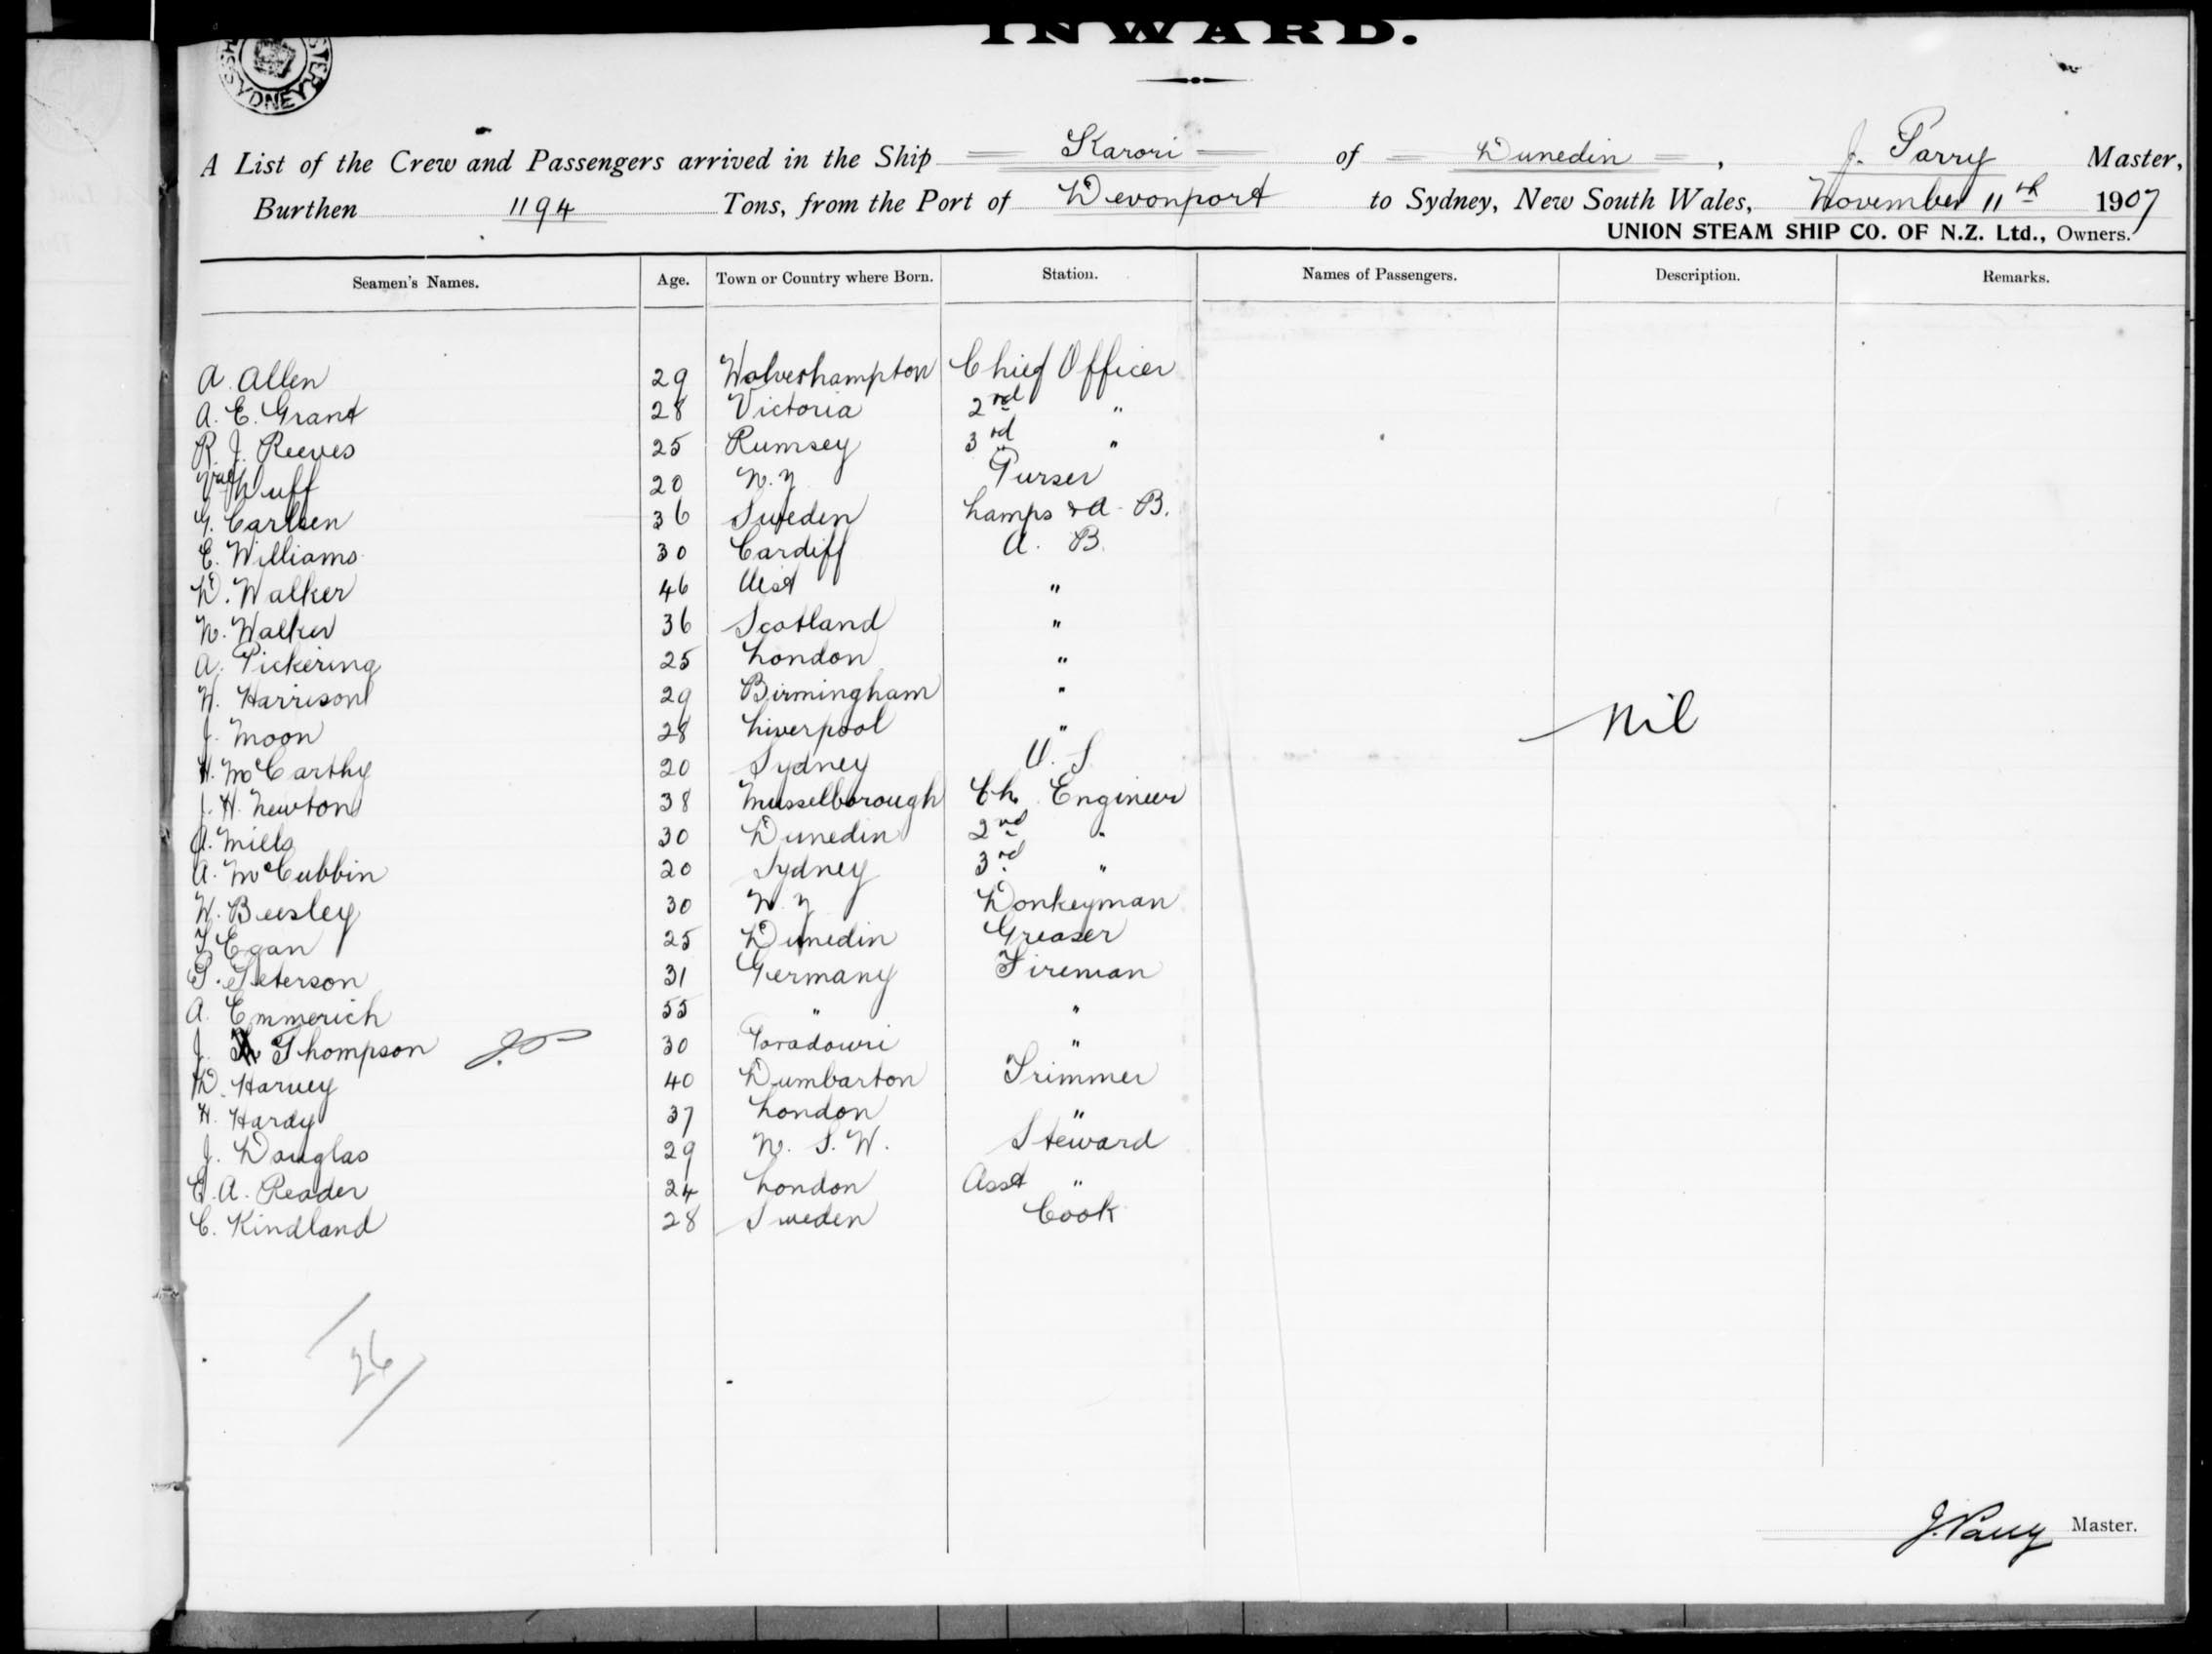 INWARD.
SYDNEY
A List of the Crew and Passengers arrived in the Ship Karori of Dunedin, J. Parry Master,
Burthen 1194 Tons, from the Port of Devonport to Sydney, New South Wales, November 11th 1907
UNION STEAM SHIP CO. OF N.Z. Ltd., Owners.
Seamen's Names. Age. Town or Country where Born. Station. Names of Passengers. Description. Remarks.
A. Allen 29 Wolverhampton Chief Officer
A. E. Grant 28 Victoria 2nd "
R. J. Reeves 25 Rumsey 3rd "
Duff 20 N.Z Purser
G. Carlsen 36 Sweden Lamps & A. B.
E. Williams 30 Cardiff A. B.
D. Walker 46 Uist "
N. Walker 36 Scotland "
A. Pickering 25 London "
W. Harrison 29 Birmingham "
J. Moon 28 Liverpool "
Nil
H. McCarthy 20 Sydney O. S
J. H. Newton 38 Musselborough Ch. Engineer
A. Mills 30 Dunedin 2nd "
A. McCubbin 20 Sydney 3rd "
W. Beesley 30 N.Z Donkeyman
T Egan 25 Dunedin Greaser
P. Peterson 31 Germany Fireman
A. Emmerich 55 " "
J. Thompson J.P 30 "
D. Harvey 40 Dumbarton Trimmer
H. Hardy 37 London "
J. Douglas 29 N. S. W. Steward
E. A. Reader 24 London Asst "
C. Kindland 28 Sweden Cook
26
J. Parry Master.